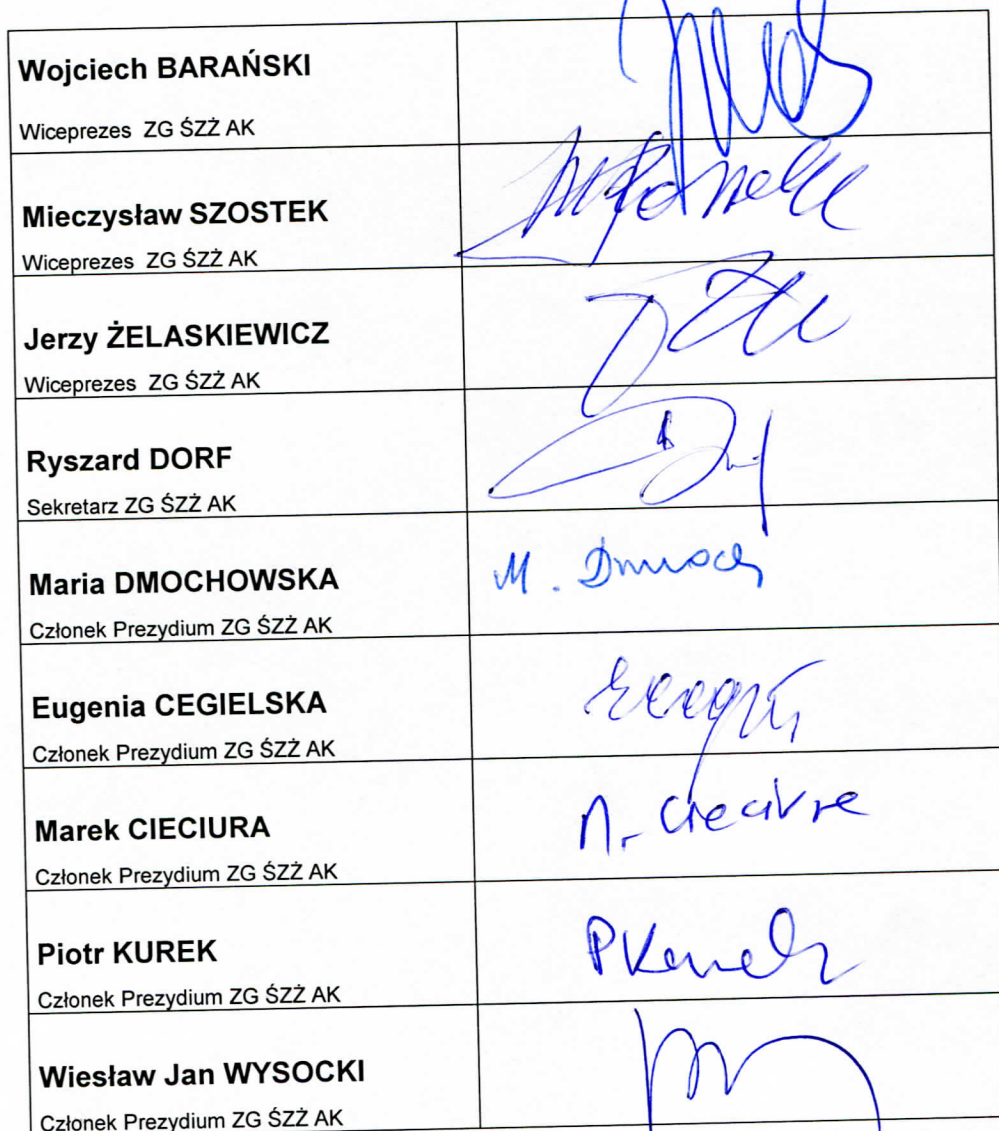 Wojciech BARAŃSKI
Wiceprezes ZG ŚZŻ AK
Mieczysław SZOSTEK
Wiceprezes ZG ŚZŻ AK
Jerzy ŻELASKIEWICZ
Wiceprezes ZG ŚZŻ AK
Ryszard DORF
Sekretarz ZG ŚZŻ AK
Maria DMOCHOWSKA
M. Dmoch
Członek Prezydium ZG ŚZŻ AK
Eugenia CEGIELSKA
Członek Prezydium ZG ŚZŻ AK
Marek CIECIURA
M. Cieciura
Członek Prezydium ZG ŚZŻ AK
Piotr KUREK
Członek Prezydium ZG ŚZŻ AK
Wiesław Jan WYSOCKI
Członek Prezydium ZG ŚZŻ AK